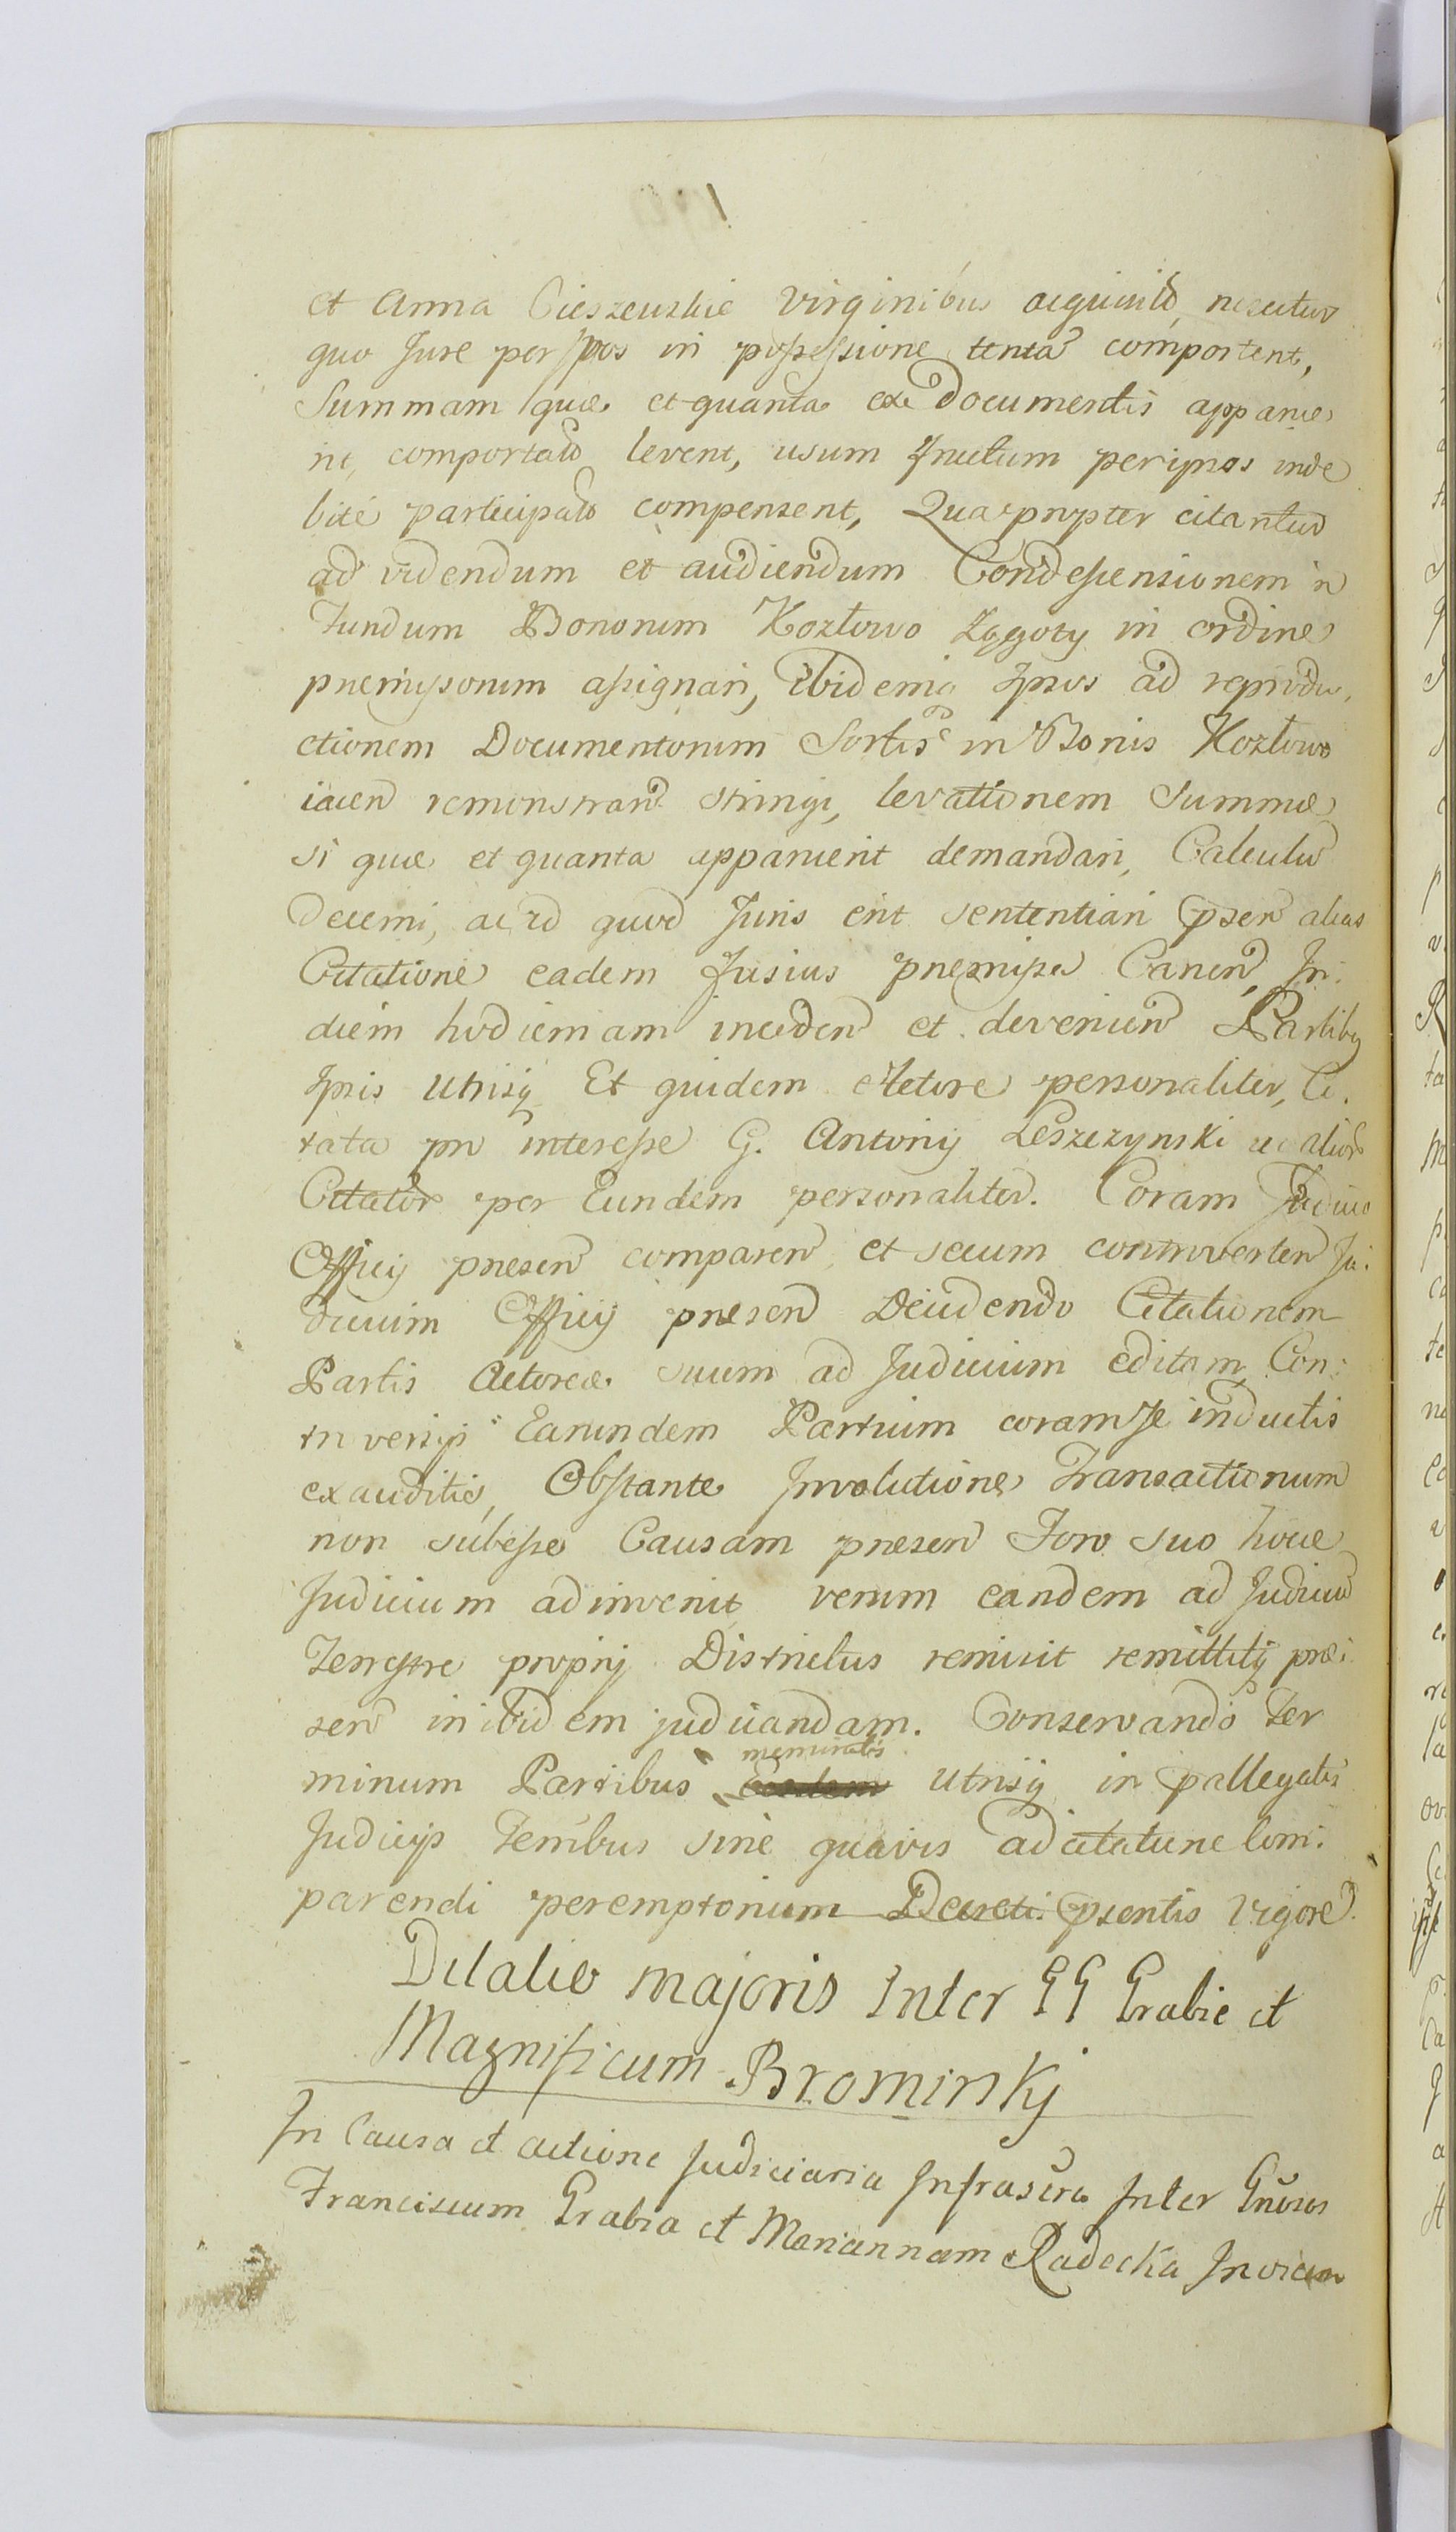 et Anna Cieszewskie Virginibus acquisito, nescitur
quo Jure per Ipsos in possessione tenta comportent,
Summam quæ et quanta ex Documentis apparue
rit, comportato levent, usum fructum per ipsos inde
bité participato compensent, Quapropter citantur
ad videndum et audiendum Condescensionem in
Fundum Bonorum Kozłowo Łęgoty in ordine
præmissorum assignari, ibidemq Ipsos ad reprodu,
ctionem Documentorum Sortis in Bonis Kozłowo
iacen remonstran stringi, levationem Summæ
si quæ et quanta apparuerit demandari, Calculu
decerni, ac id quod Juris erit sententiari psen alias
Citatione eadem fusius præmissa Canen, In
diem hodiernam inciden et devenien Partibq
Ipsis utrisq Et quidem Actore personaliter, Ci.
tata pro interesse G. Antonij Leszczynski ac alior
Citator per Eundem personaliter. Coram Judicio
Officij præsen comparen et secum controverten Ju:
dicium Officij præsen Decidendo Citationem
Partis Actoreæ suum ad Judicium editam Con:
troversijs Earundem Partium coram Se inductis
exauditis, Obstante Involutione Transactionum
non subesse Causam præsen Foro suo hocce
Judicium adinvenit, verum eandem ad Judiciu
Terrestre proprij Districtus remisit remittitq præ:
sen inibidem judicandam. Conservando Ter
minum Partibus memoratis utrisq in pallegatis
Judicijs Terribus sine quavis adcitatione Com:
parendi peremptorium Decreti psentis vigore.
Dilatio majoris Inter GG Grabie et
Magnificum Brominskj
In Causa et actione Judiciaria Infrascra Inter Gnosos
Franciscum Grabia et Mariannam Radecka Invicem